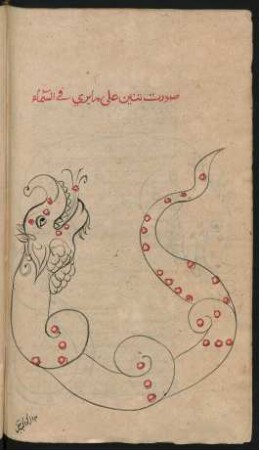 صورت تنين على ما يرى في السماء